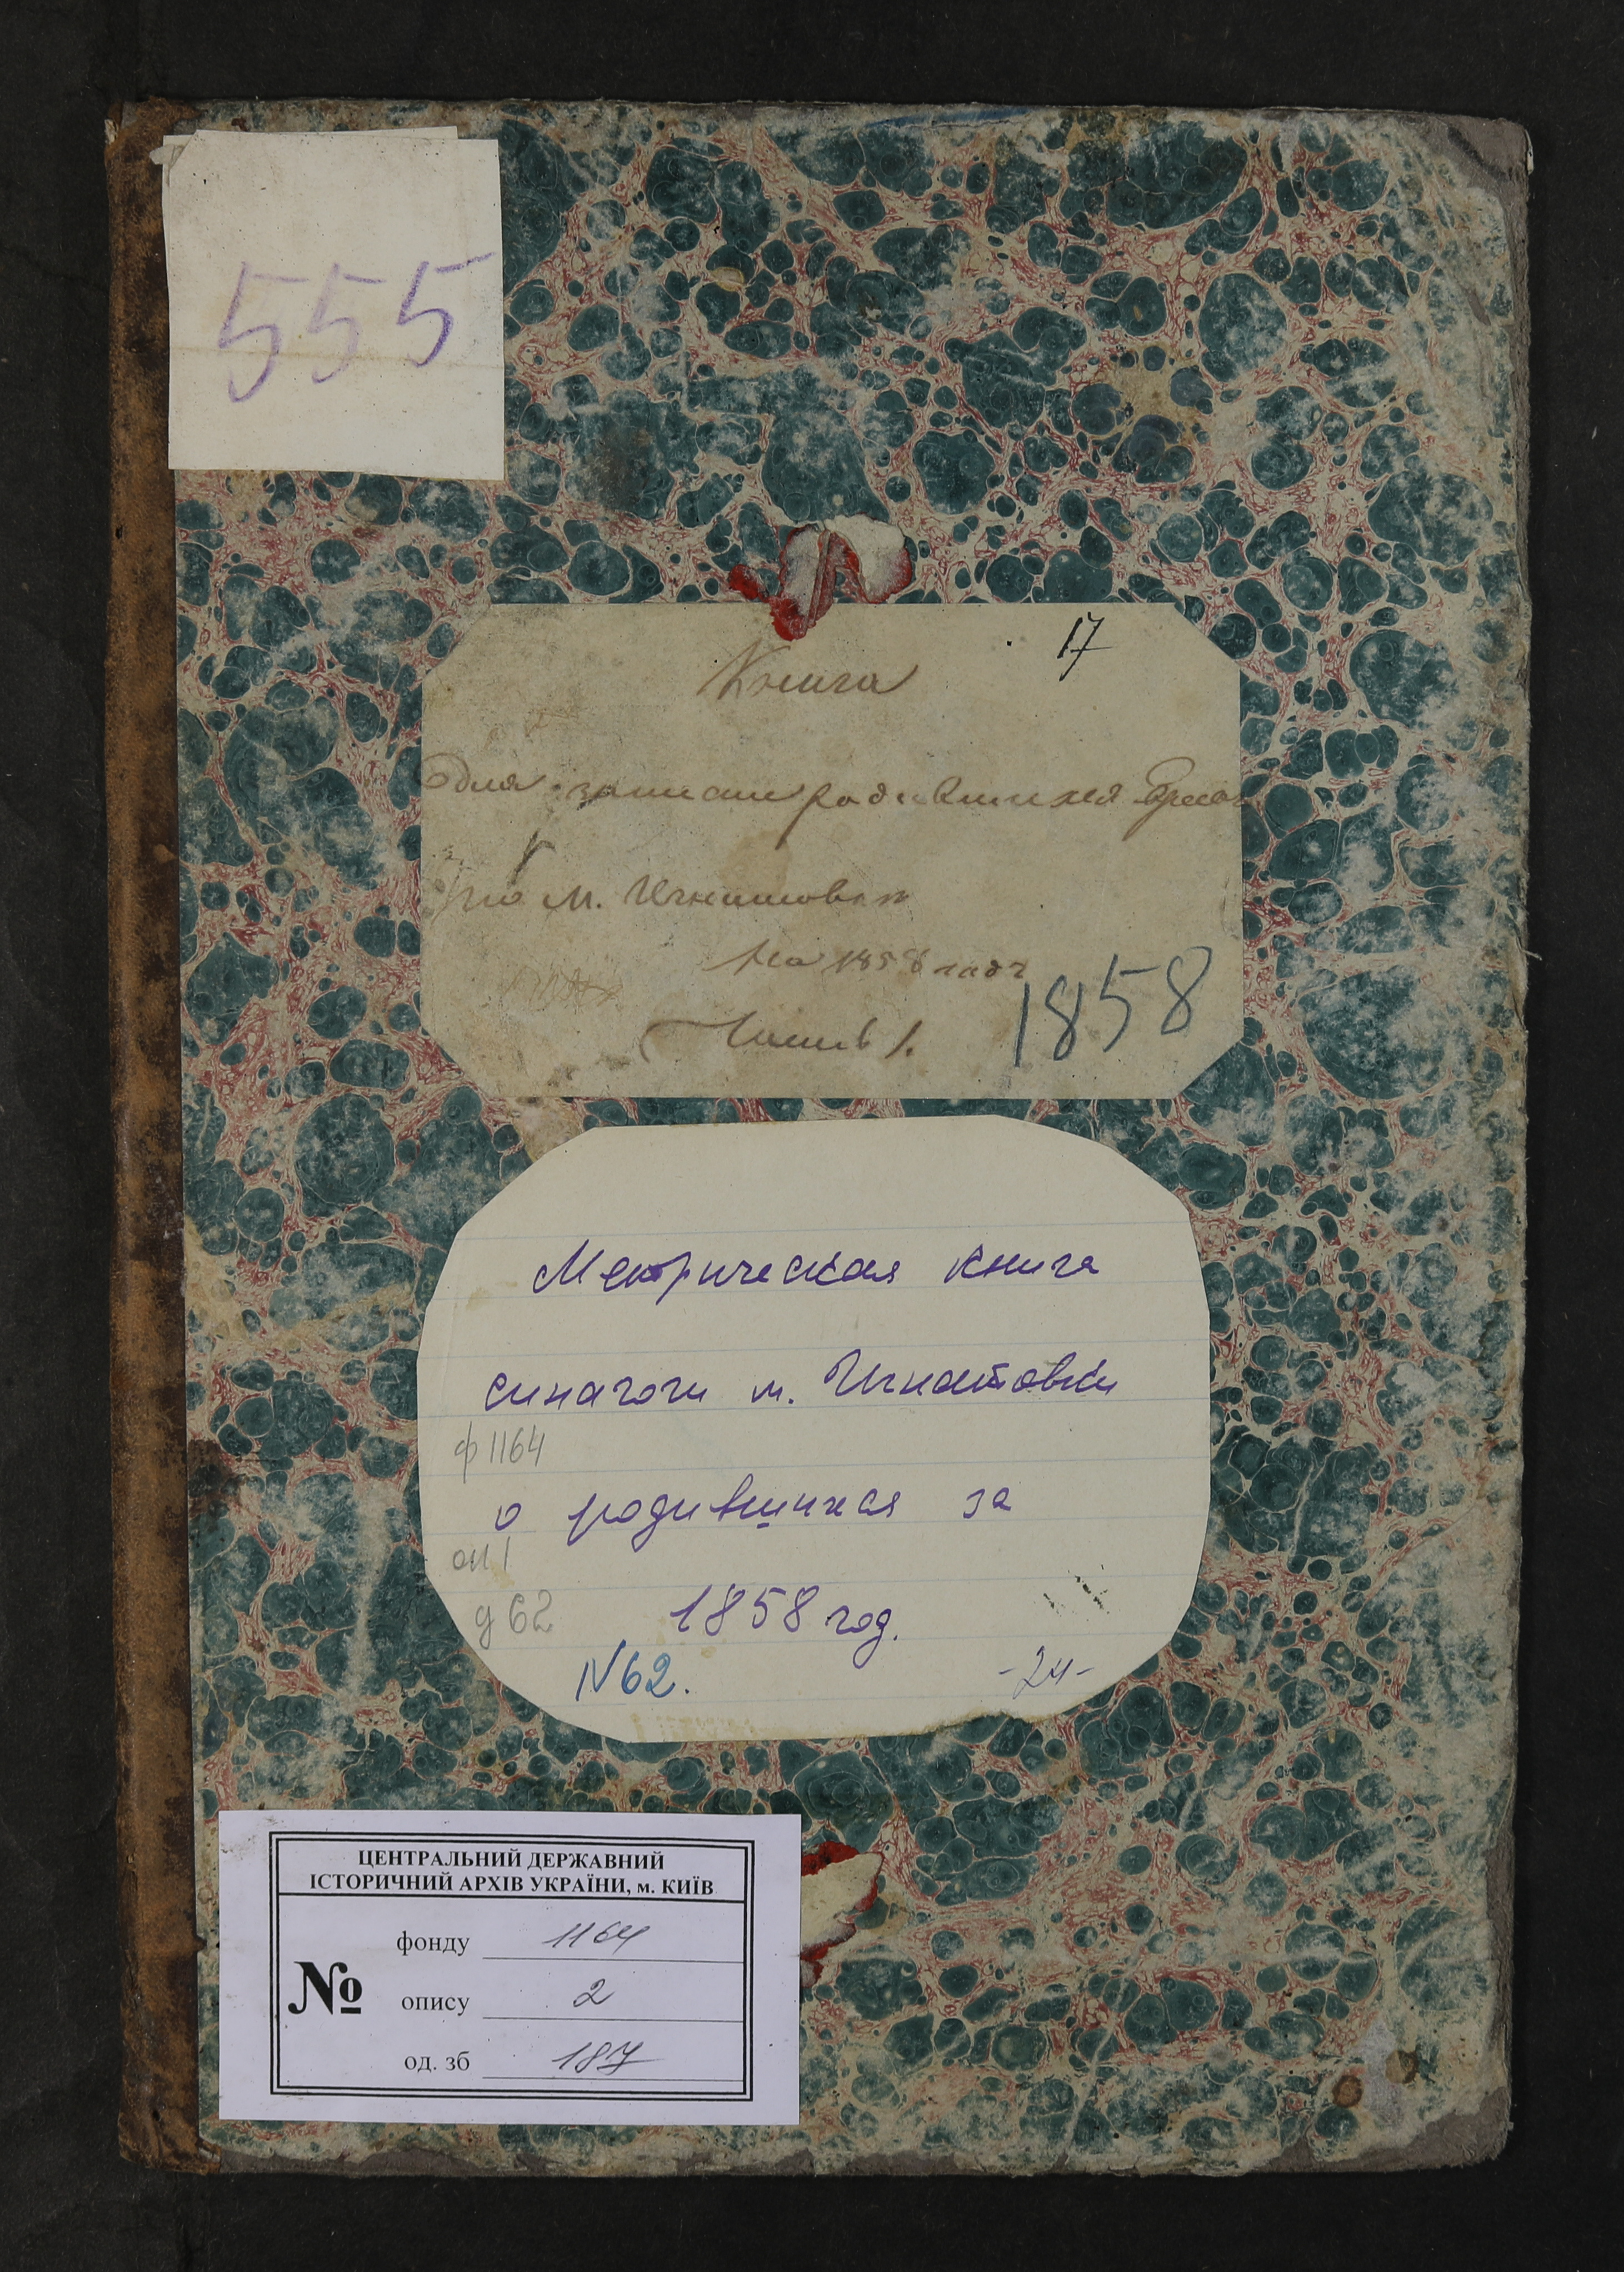 555
17
Книга
для записи родившихся Евреевъ
по м. Игнатовкѣ
на 1858 годъ
1858
Часть 1.
Метрическая книга
синагоги м. Игнатовки
ф 1164
о родившихся за
оп 1
д 62
1858 год.
N 62.
-24-
ЦЕНТРАЛЬНИЙ ДЕРЖАВНИЙ
ІСТОРИЧНИЙ АРХІВ УКРАЇНИ, м. КИЇВ
№
фонду 1164
опису 2
од. зб 187